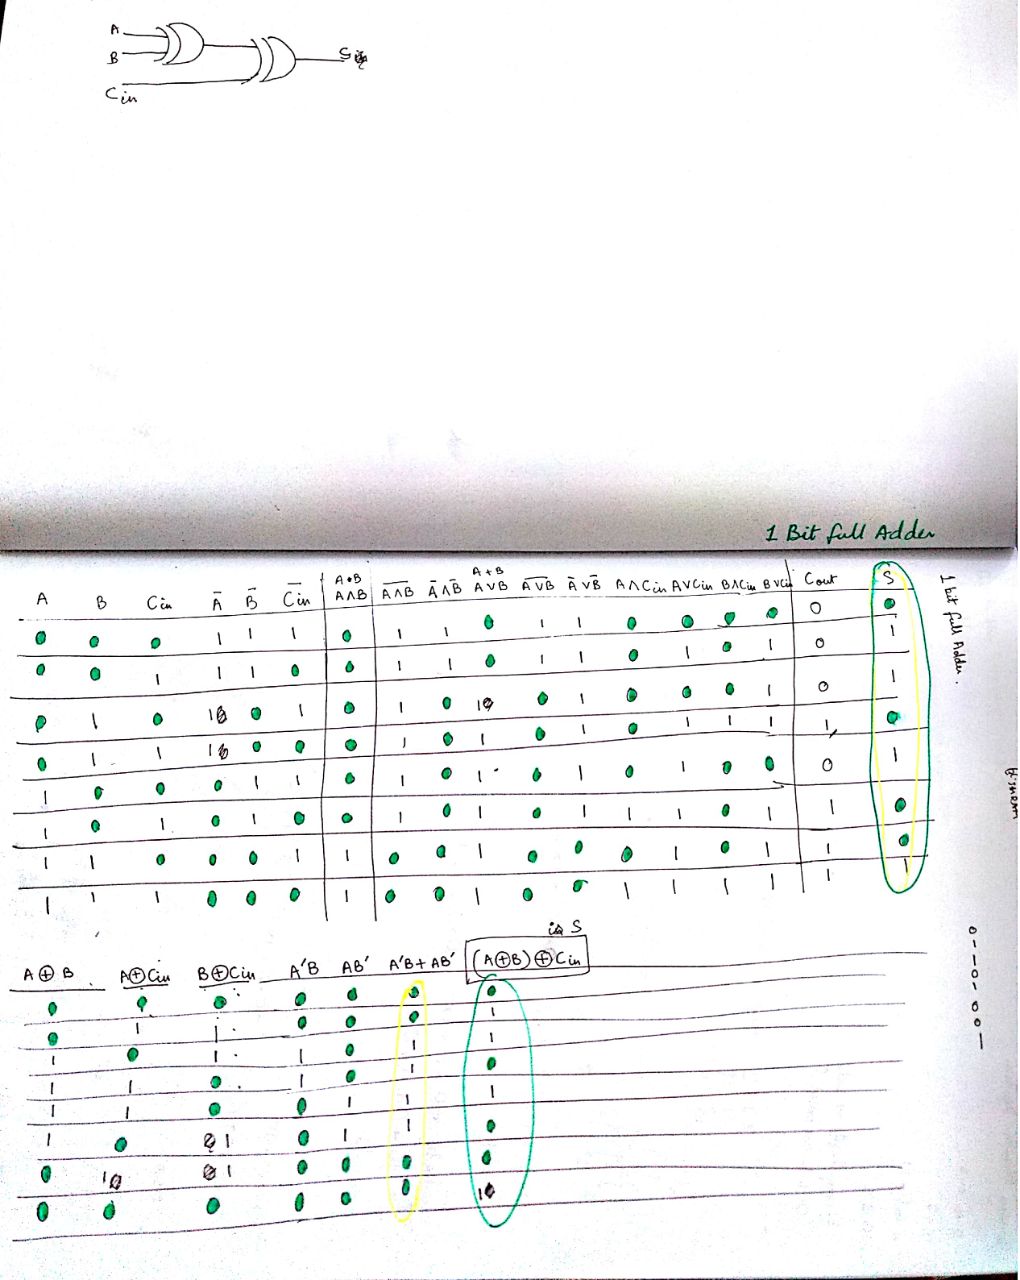 A
B
S
Cin
1 Bit full Adder
A B Cin A̅ B̅ C̅i̅n̅ A•B A∧B A̅∧̅B̅ A̅∧B̅ A+B A∨B A̅∨̅B̅ A̅∨B̅ A∧Cin A∨Cin B∧Cin B∨Cin Cout S
0 0 0 1 1 1 0 1 1 0 1 1 0 0 0 0 0 0
0 0 1 1 1 0 0 1 1 0 1 1 0 1 0 1 0 1
0 1 0 1 0 1 0 1 0 1 0 1 0 0 0 1 0 1
0 1 1 1 0 0 0 1 0 1 0 1 0 1 1 1 1 0
1 0 0 0 1 1 0 1 0 1 0 1 0 1 0 0 0 1
1 0 1 0 1 0 0 1 0 1 0 1 1 1 0 1 1 0
1 1 0 0 0 1 1 0 0 1 0 0 0 1 0 1 1 0
1 1 1 0 0 0 1 0 0 1 0 0 1 1 1 1 1 1
1 bit full Adder.
is S
A⊕B A⊕Cin B⊕Cin A'B AB' A'B+AB' (A⊕B)⊕Cin
0 0 0 0 0 0 0
0 1 1 0 0 0 1
1 0 1 1 0 1 1
1 1 0 1 0 1 0
1 1 0 0 1 1 1
1 0 1 0 1 1 0
0 1 1 0 0 0 0
0 0 0 0 0 0 1
0 1 1 0 1 0 0 1